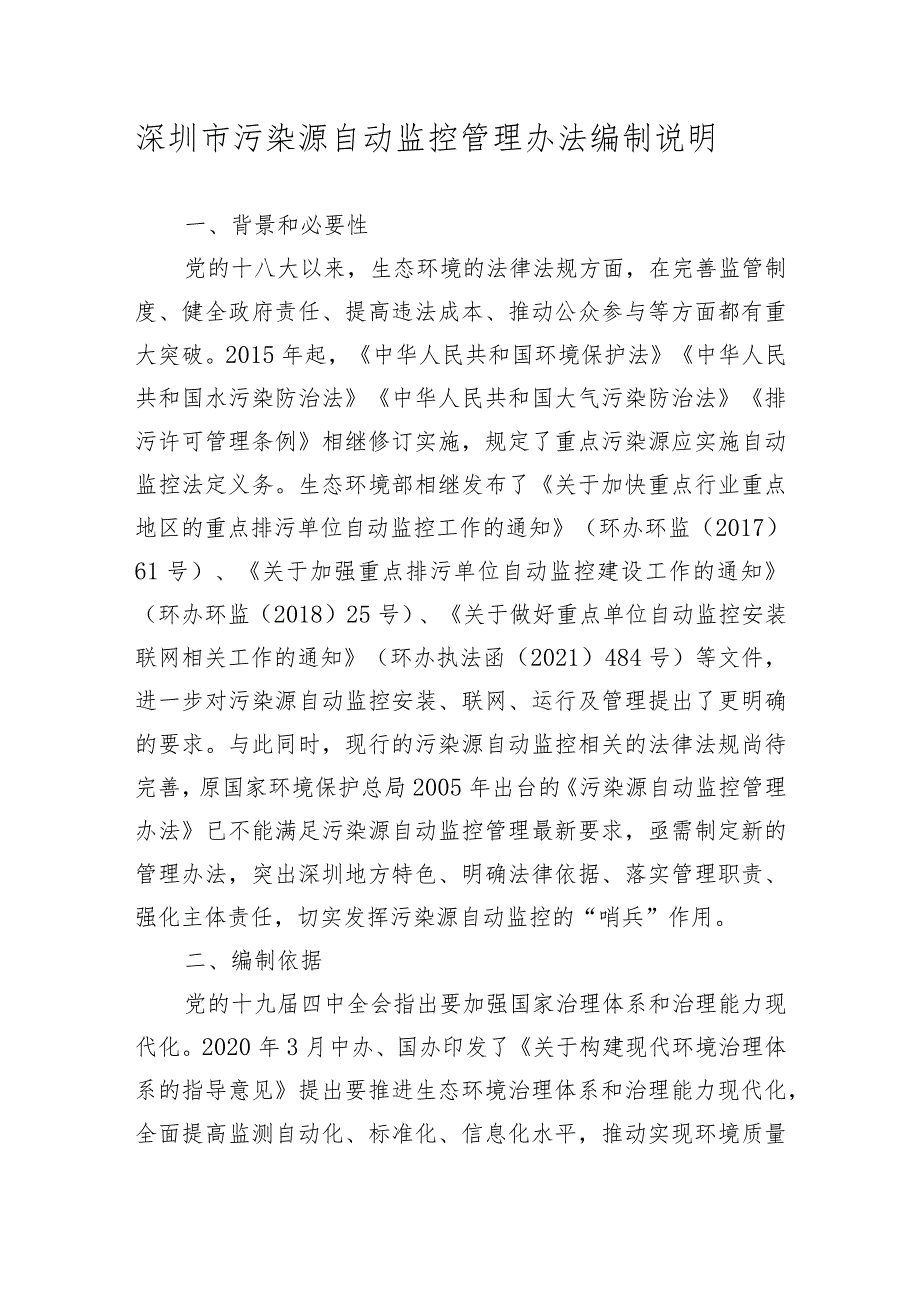 深圳市污染源自动监控管理办法编制说明
一、背景和必要性
党的十八大以来，生态环境的法律法规方面，在完善监管制
度、健全政府责任、提高违法成本、推动公众参与等方面都有重
大突破。2015年起，《中华人民共和国环境保护法》《中华人民
共和国水污染防治法》《中华人民共和国大气污染防治法》《排
污许可管理条例》相继修订实施，规定了重点污染源应实施自动
监控法定义务。生态环境部相继发布了《关于加快重点行业重点
地区的重点排污单位自动监控工作的通知》（环办环监（2017）
61号）、《关于加强重点排污单位自动监控建设工作的通知》
（环办环监（2018）25号）、《关于做好重点单位自动监控安装
联网相关工作的通知》（环办执法函（2021）484号）等文件，
进一步对污染源自动监控安装、联网、运行及管理提出了更明确
的要求。与此同时，现行的污染源自动监控相关的法律法规尚待
完善，原国家环境保护总局2005年出台的《污染源自动监控管理
办法》已不能满足污染源自动监控管理最新要求，亟需制定新的
管理办法，突出深圳地方特色、明确法律依据、落实管理职责、
强化主体责任，切实发挥污染源自动监控的“哨兵”作用。
二、编制依据
党的十九届四中全会指出要加强国家治理体系和治理能力现
代化。2020年3月中办、国办印发了《关于构建现代环境治理体
系的指导意见》提出要推进生态环境治理体系和治理能力现代化，
全面提高监测自动化、标准化、信息化水平，推动实现环境质量